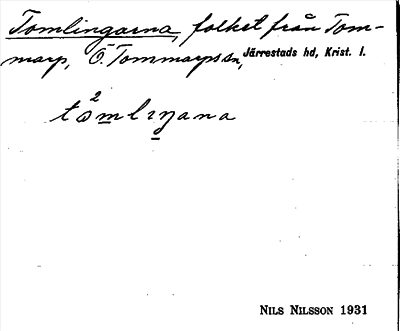 Tomlingarna, folket från Tom-
marp, Ö. Tommarps sn, Järrestads hd, Krist. l.
t²omlıŋana
NILS NILSSON 1931